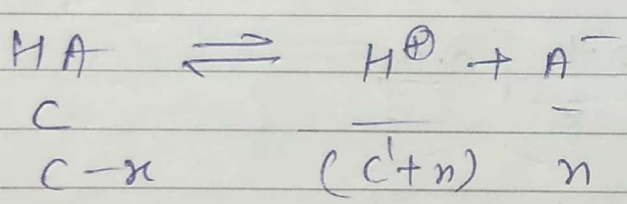 HA ⇌ H⊕ + A⁻
C — –
C-x (C'+x) x